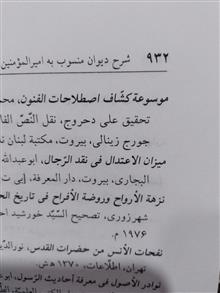 ۹۳۲ شرح دیوان منسوب به امیرالمؤمنین
موسوعة کشّاف اصطلاحات الفنون، محم
تحقیق علی دحروج، نقل النّصّ الفا
جورج زیناتی، بیروت، مکتبة لبنان
میزان الاعتدال فی نقد الرّجال، ابوعبدالله
البجاری، بیروت، دار المعرفة، [بی ت
نزهة الأرواح وروضة الأفراح فی تاریخ الح
شهرزوری، تصحیح السّیّد خورشید اح
۱۹۷۶ م.
نفحات الأنس من حضرات القدس، نورالدّین
تهران، اطّلاعات، ۱۳۷۰ هش.
نوادر الأصول فی معرفة أحادیث الرّسول، ابوع